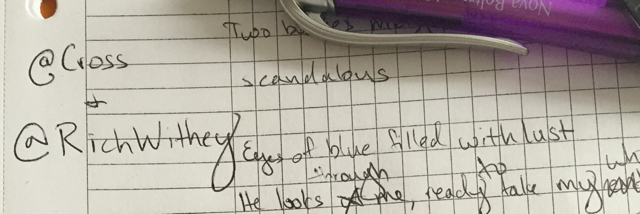 Nova
Two
@Cross
scandalous
+
@RichWithey
Eyes of blue filled with lust
through to wh
He looks me, ready take my